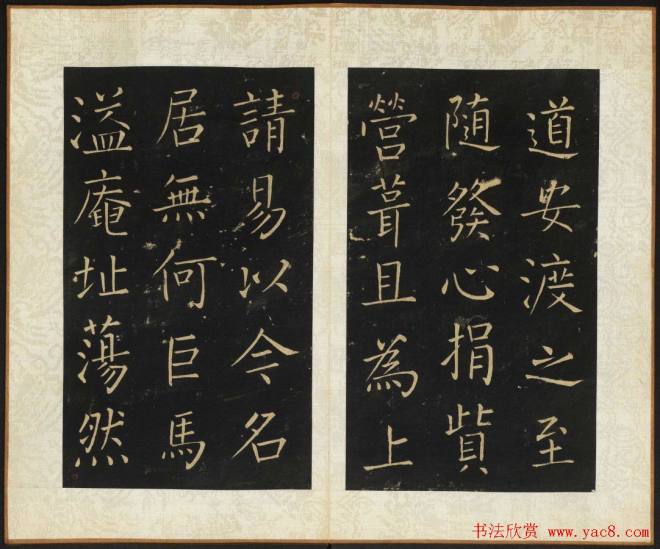 道安渡之至
隨發心捐貲
營葺且為上
請易以今名
居無何巨馬
溢庵址蕩然
书法欣赏 www.yac8.com